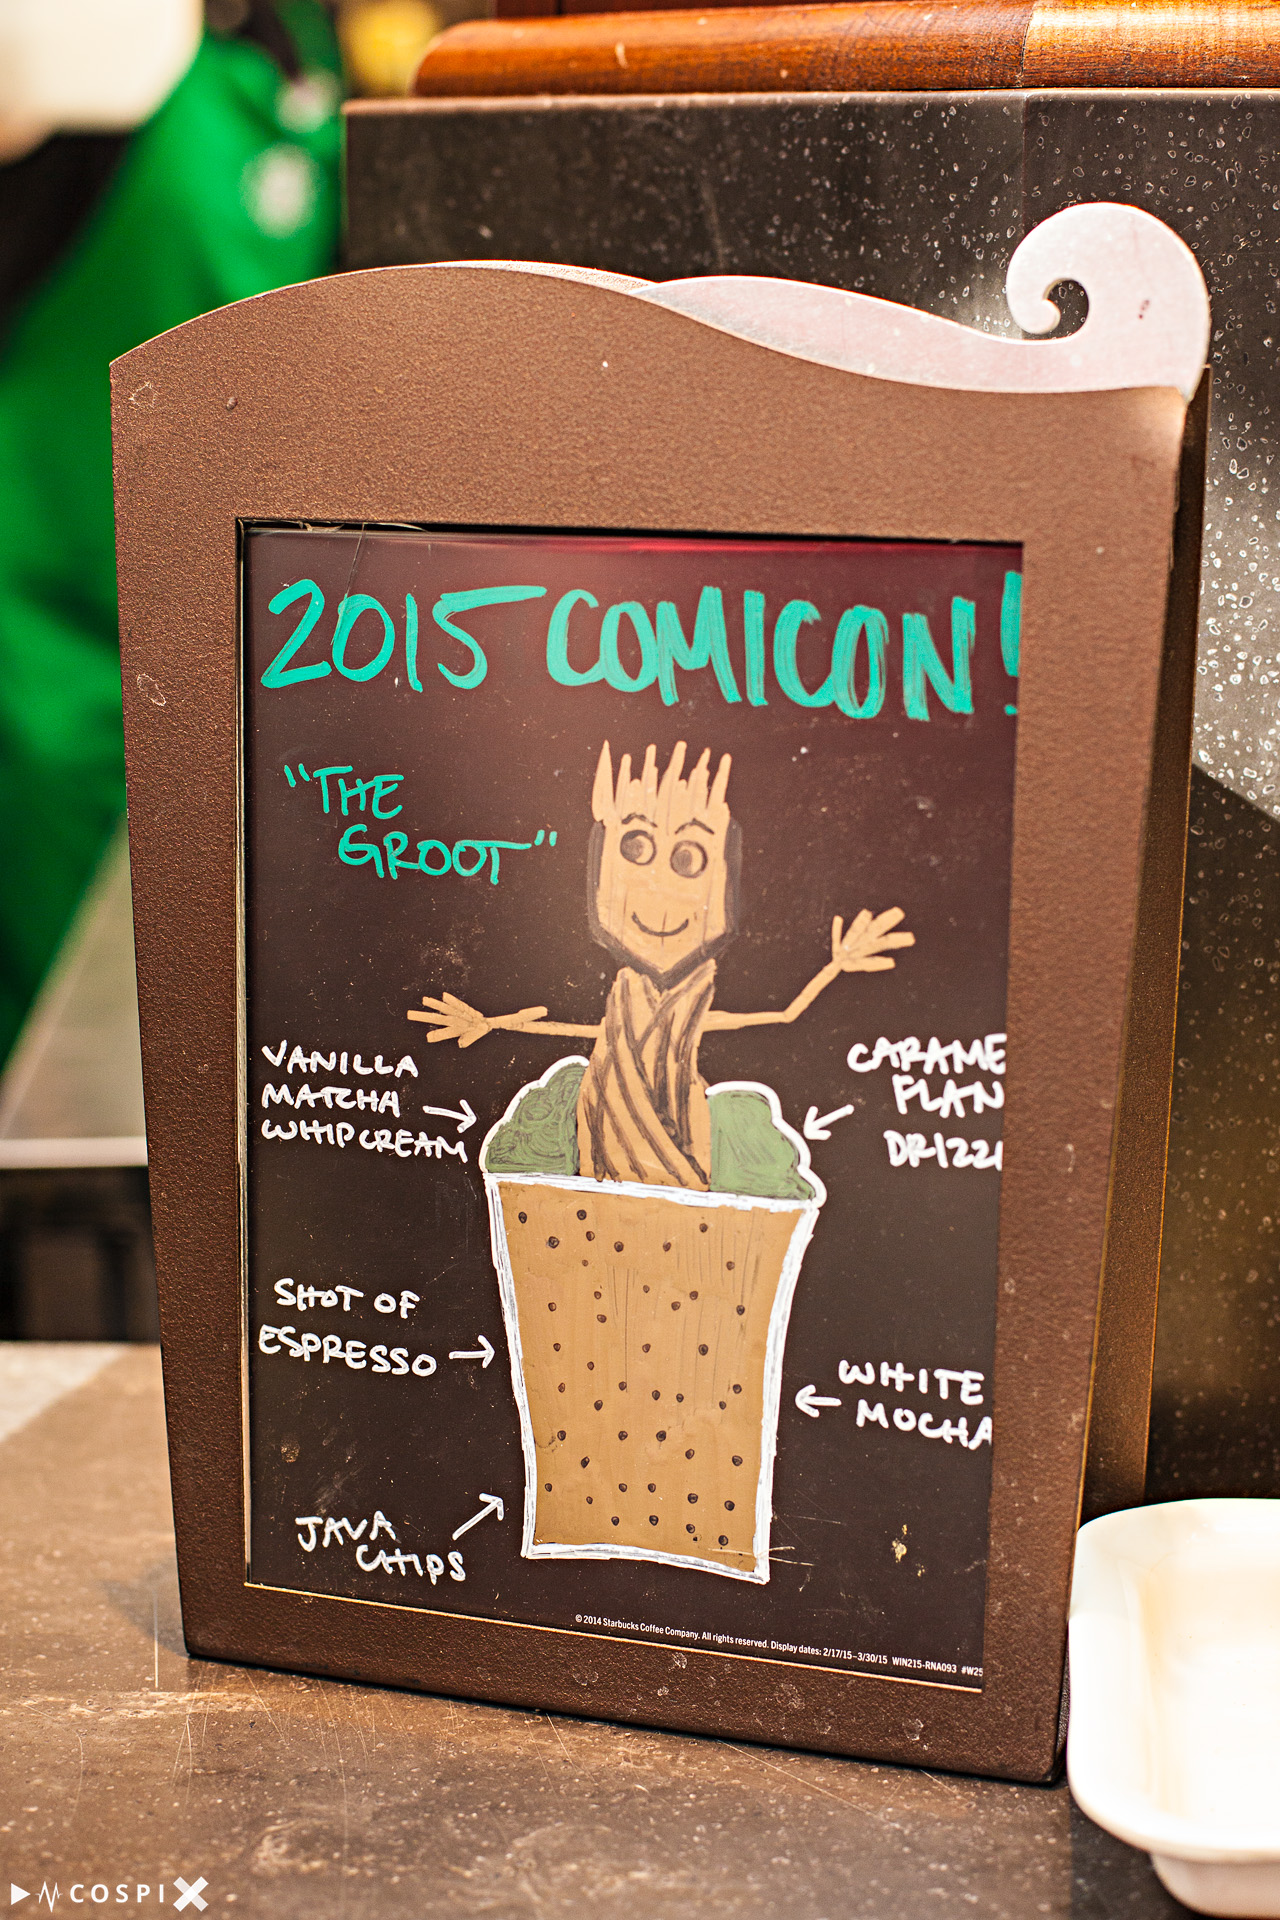 2015 COMICON!
"THE
GROOT"
VANILLA
MATCHA
WHIPCREAM
CARAME
FLAN
DRIZZL
SHOT OF
ESPRESSO
WHITE
MOCHA
JAVA
CHIPS
© 2014 Starbucks Coffee Company. All rights reserved. Display dates: 2/17/15–3/30/15 WIN215-RNA093 #W25
COSPIX